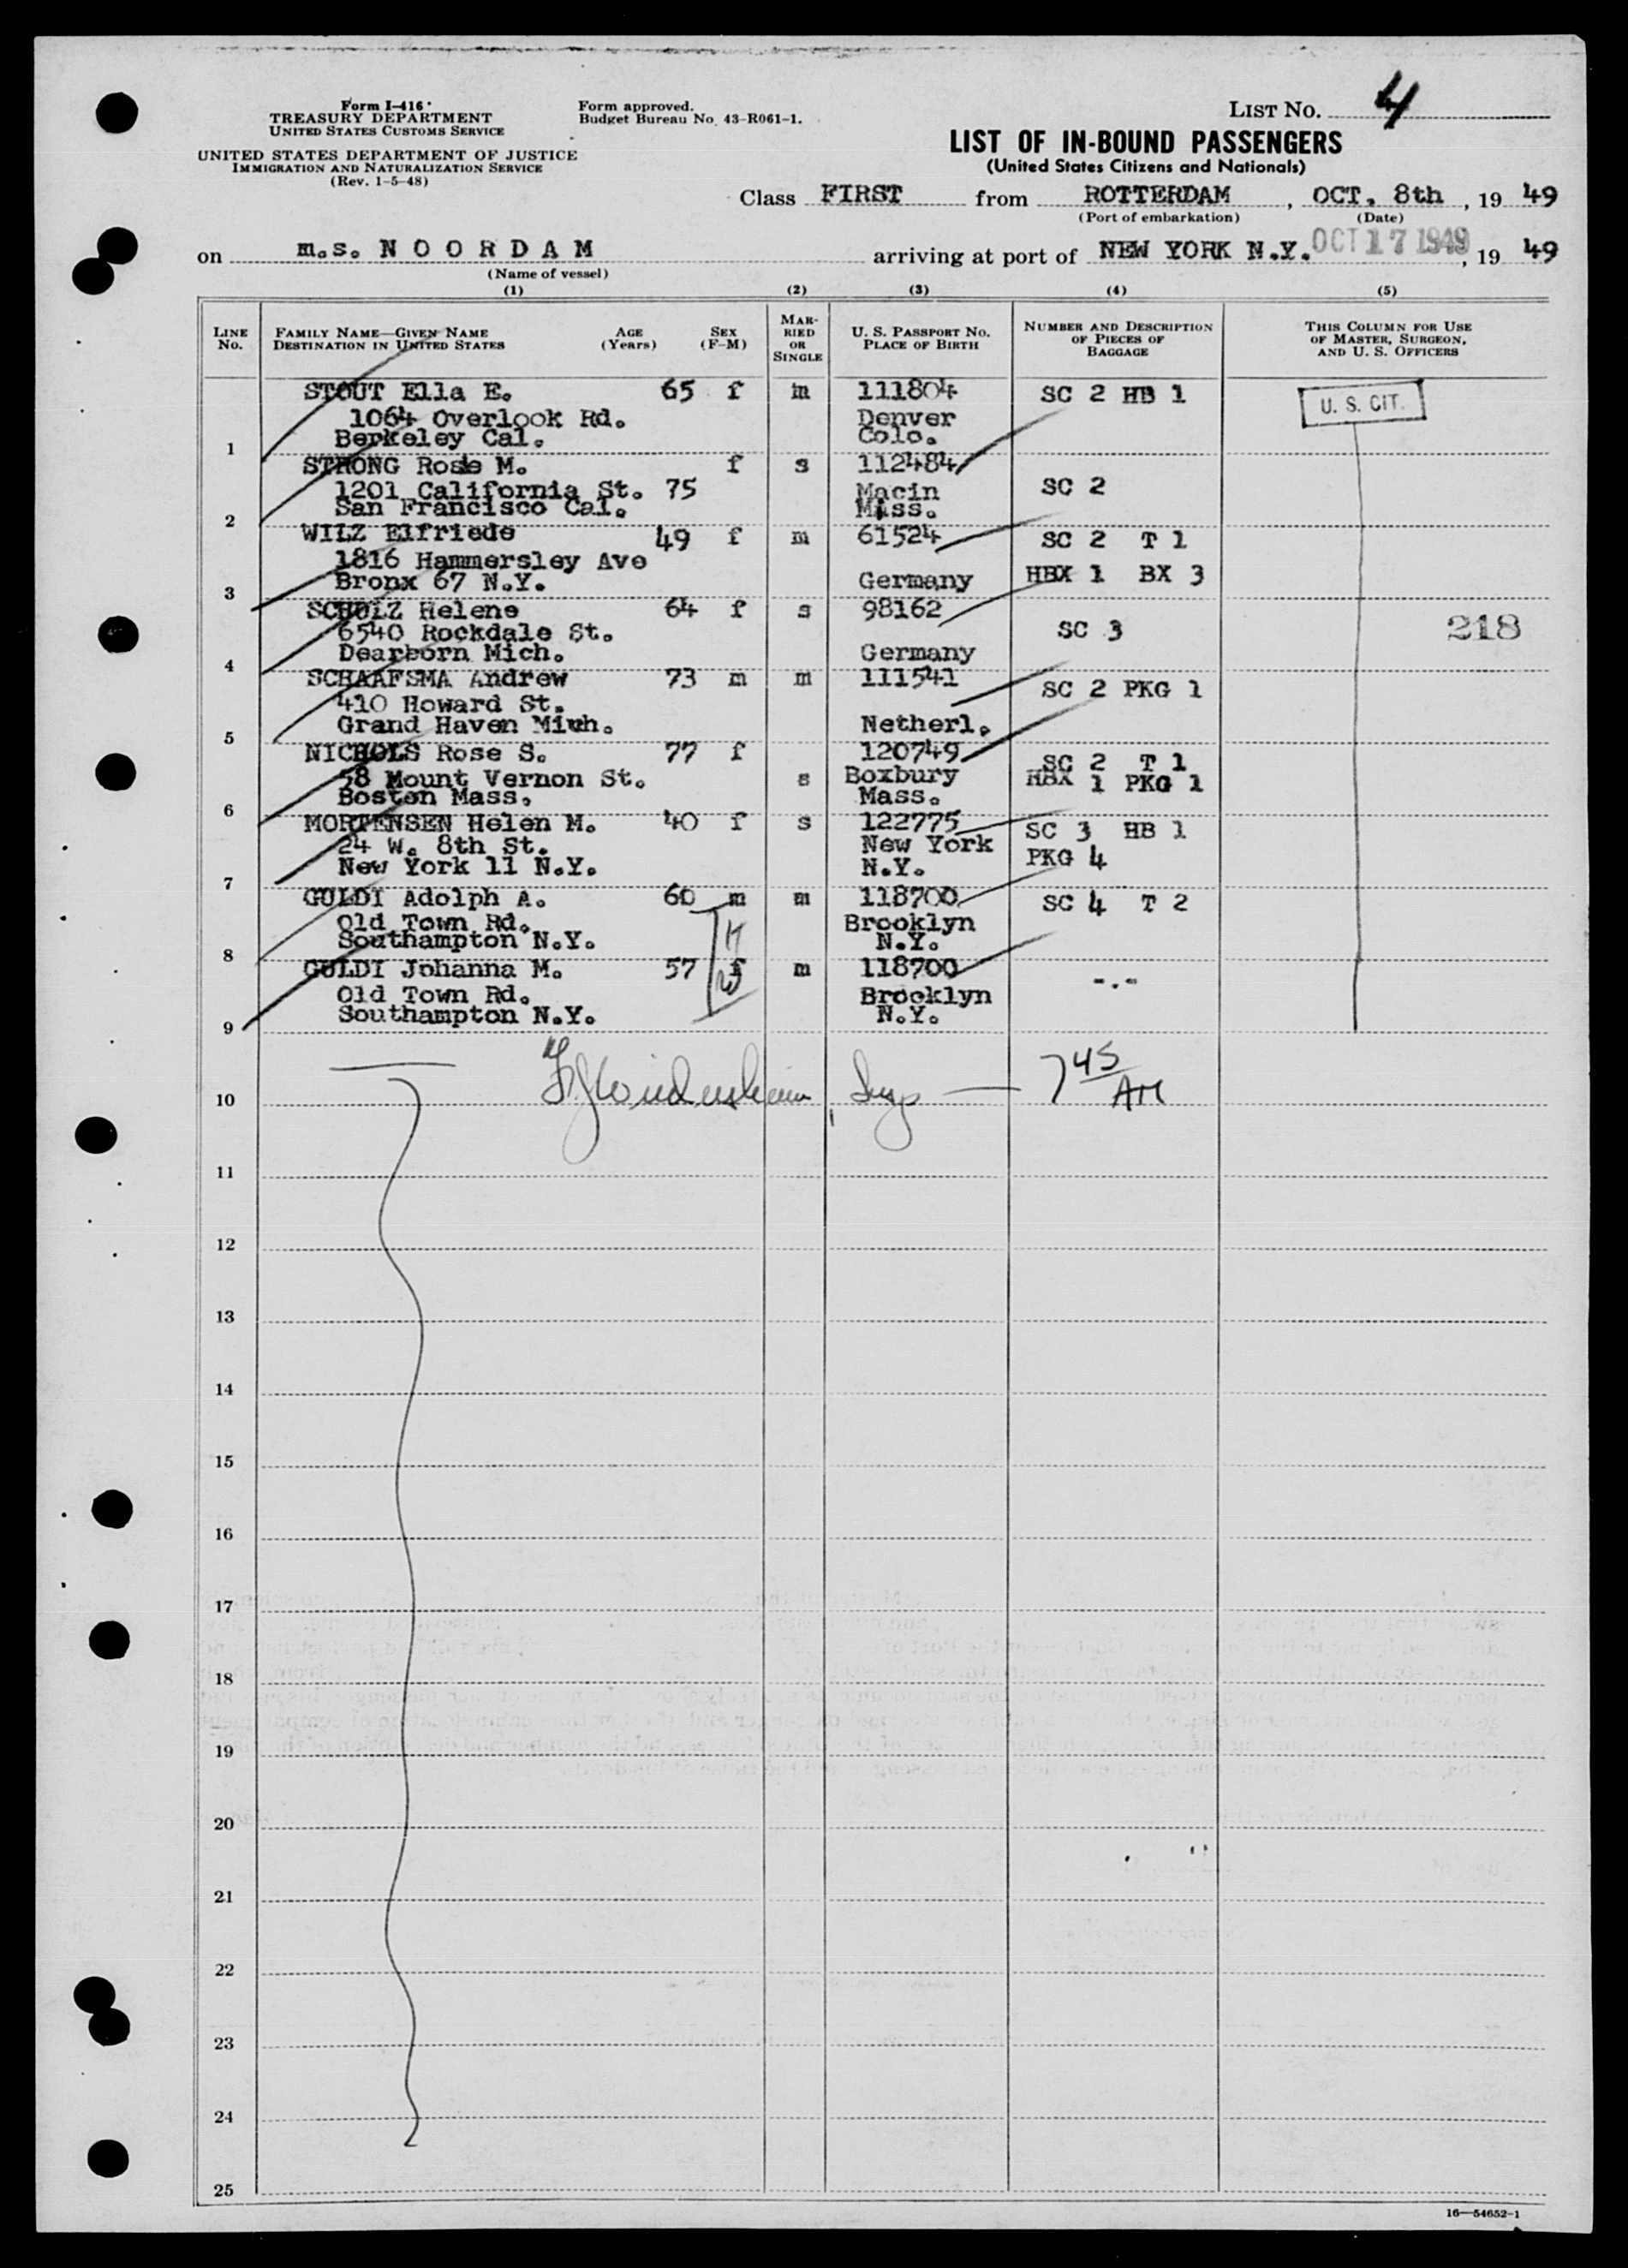 Form I-416
TREASURY DEPARTMENT
UNITED STATES CUSTOMS SERVICE
UNITED STATES DEPARTMENT OF JUSTICE
IMMIGRATION AND NATURALIZATION SERVICE
(Rev. 1-5-48)
Form approved.
Budget Bureau No. 43-R061-1.
LIST No. 4
LIST OF IN-BOUND PASSENGERS
(United States Citizens and Nationals)
Class FIRST from ROTTERDAM, OCT. 8th, 19 49
(Port of embarkation) (Date)
on m.s. NOORDAM arriving at port of NEW YORK N.Y. OCT 17 1949, 19 49
(Name of vessel)
(1) (2) (3) (4) (5)
LINE No. FAMILY NAME—GIVEN NAME DESTINATION IN UNITED STATES AGE (Years) SEX (F-M) MARRIED OR SINGLE U. S. PASSPORT NO. PLACE OF BIRTH NUMBER AND DESCRIPTION OF PIECES OF BAGGAGE THIS COLUMN FOR USE OF MASTER, SURGEON, AND U. S. OFFICERS
STOUT Ella E. 65 f m 111804 SC 2 HB 1 U. S. CIT.
1064 Overlook Rd. Denver
1 Berkeley Cal. Colo.
STRONG Rose M. f s 112484
1201 California St. 75 Macin SC 2
2 San Francisco Cal. Mass.
WILZ Elfriede 49 f m 61524 SC 2 T 1
1816 Hammersley Ave
3 Bronx 67 N.Y. Germany HBX 1 BX 3
SCHOLZ Helene 64 f s 98162
6540 Rockdale St. SC 3 218
4 Dearborn Mich. Germany
SCHAAFSMA Andrew 73 m m 111541 SC 2 PKG 1
410 Howard St.
5 Grand Haven Mich. Netherl.
NICHOLS Rose S. 77 f 120749 SC 2 T 1
58 Mount Vernon St. s Boxbury HBX 1 PKG 1
6 Boston Mass. Mass.
MORTENSEN Helen M. 40 f s 122775 SC 3 HB 1
24 W. 8th St. New York PKG 4
7 New York 11 N.Y. N.Y.
GULDI Adolph A. 60 m m 118700 SC 4 T 2
Old Town Rd. H Brooklyn
8 Southampton N.Y. N.Y.
GULDI Johanna M. 57 f m 118700 -.-
Old Town Rd. W Brooklyn
9 Southampton N.Y. N.Y.
10 Insp — 7 45 AM
11
12
13
14
15
16
17
18
19
20
21
22
23
24
25
16—54652-1